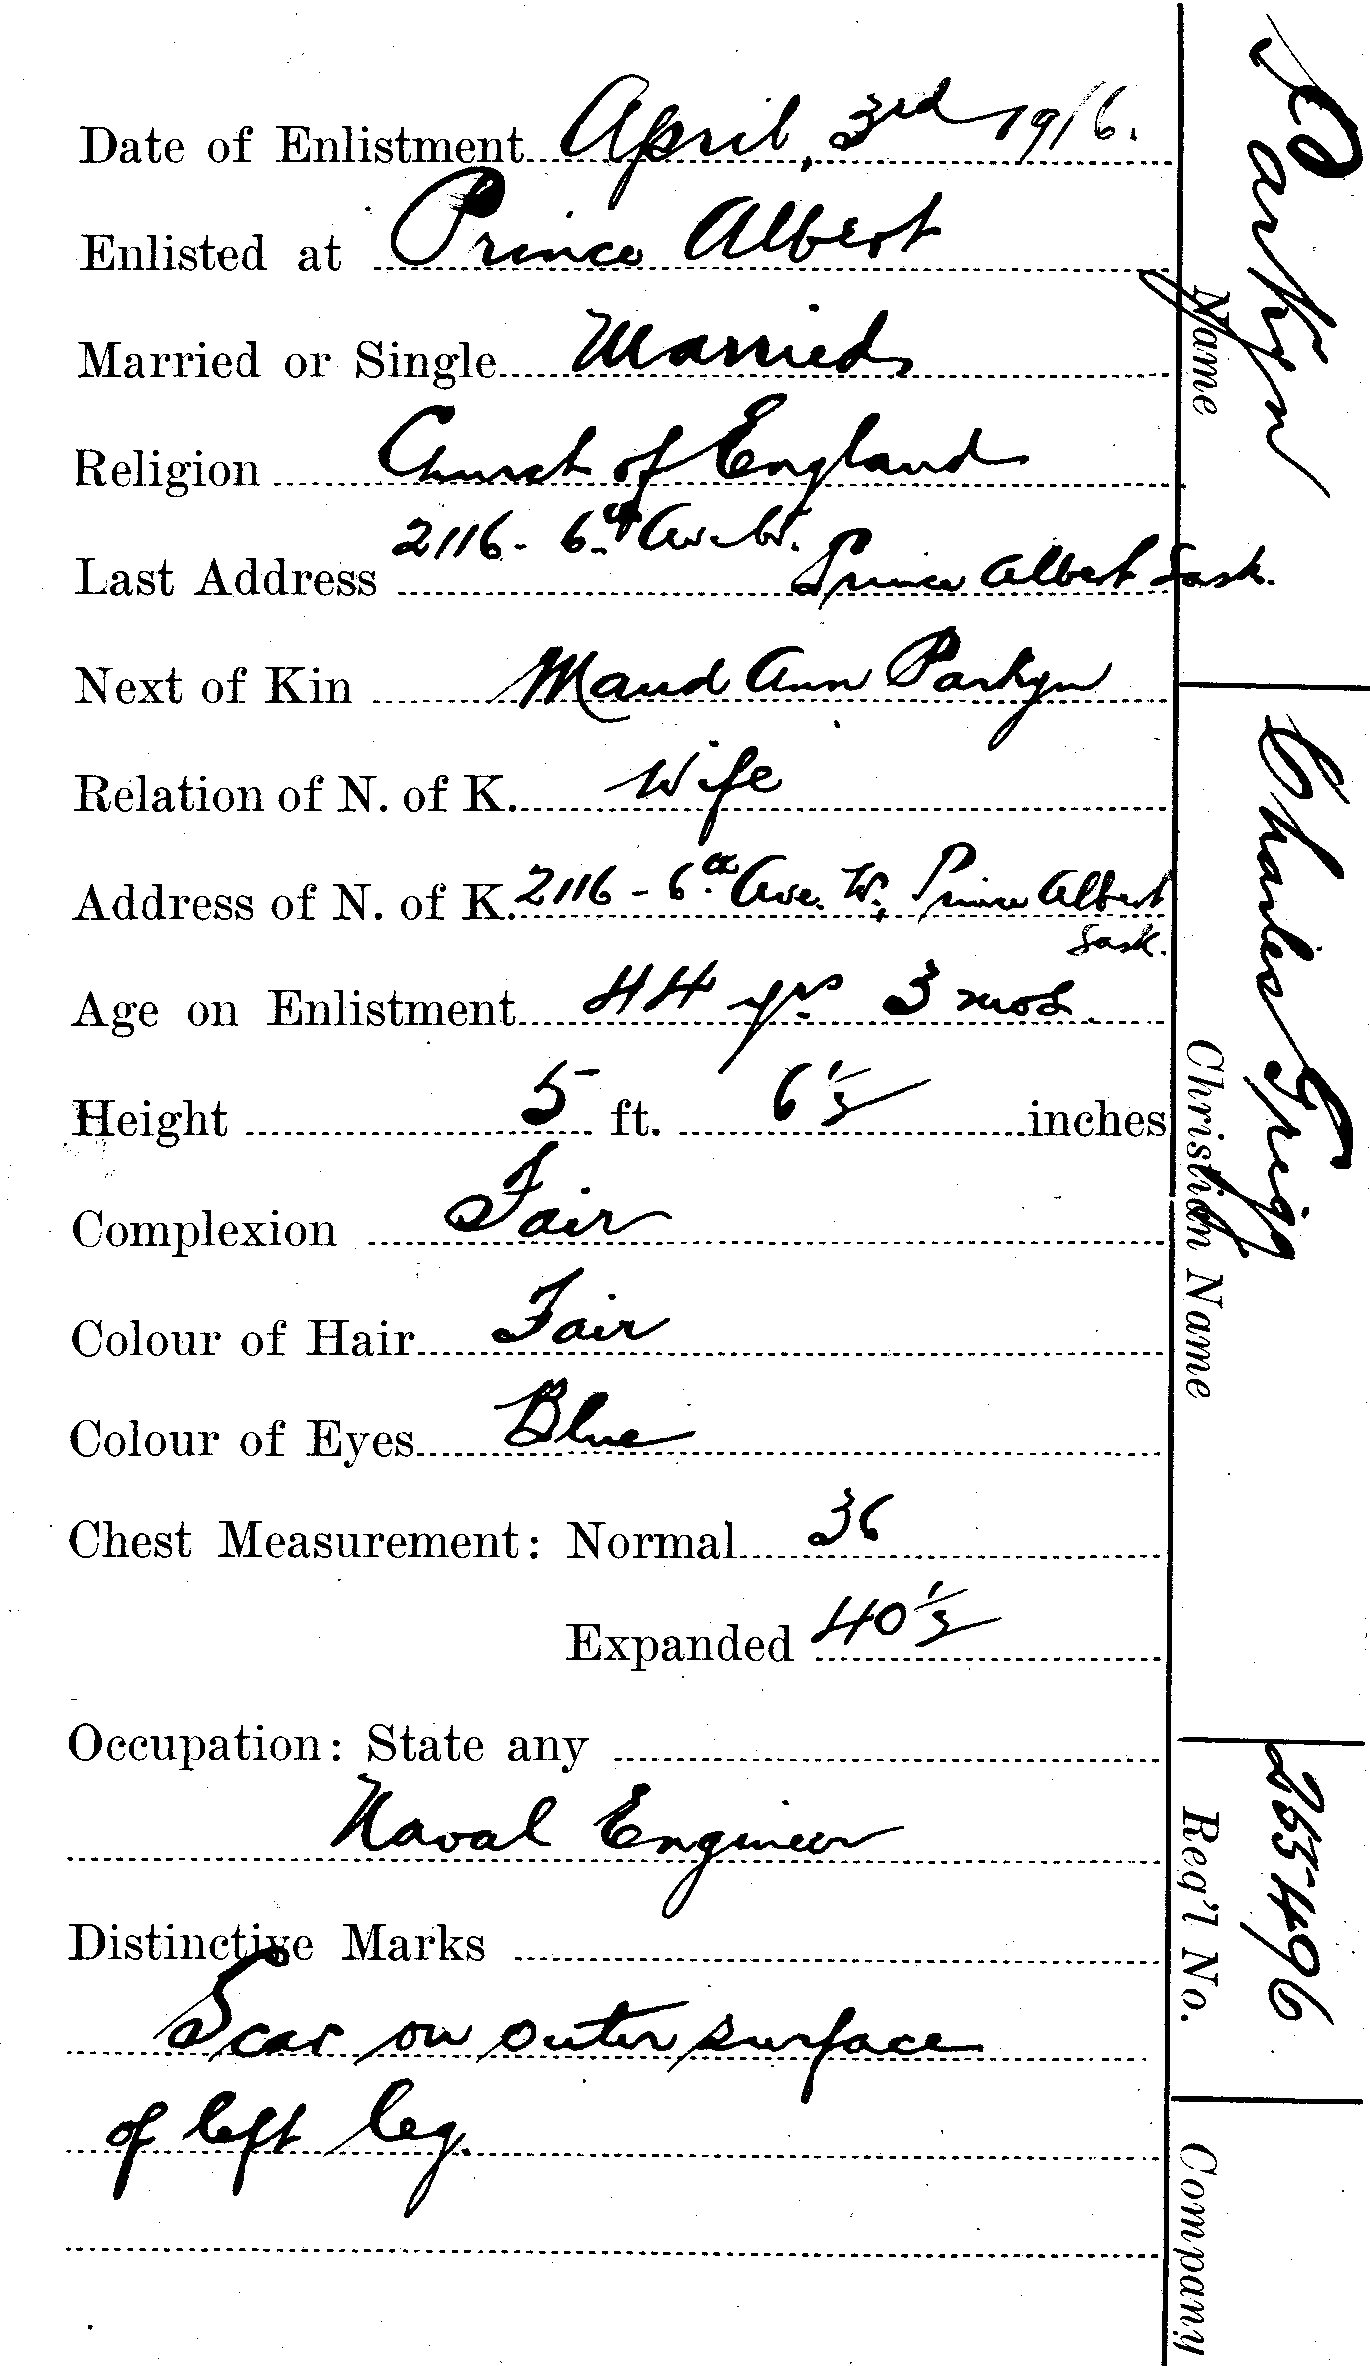 Date of Enlistment April, 3rd 1916.
Enlisted at Prince Albert
Married or Single Married
Religion Church of England
2116 - 6th Av. W.
Last Address Prince Albert Sask.
Next of Kin Maud Ann Parkyn
Relation of N. of K. Wife
Address of N. of K. 2116 - 6th Ave. W., Prince Albert
Sask.
Age on Enlistment 44 yrs 3 mos.
Height 5 ft. 6 1/2 inches
Complexion Fair
Colour of Hair Fair
Colour of Eyes Blue
Chest Measurement: Normal 36
Expanded 40 1/2
Occupation: State any
Naval Engineer
Distinctive Marks
Scar on outer surface
of left leg.
Parkyn
Name
Charles Trigg
Christian Name
255496
Reg'l No.
Company